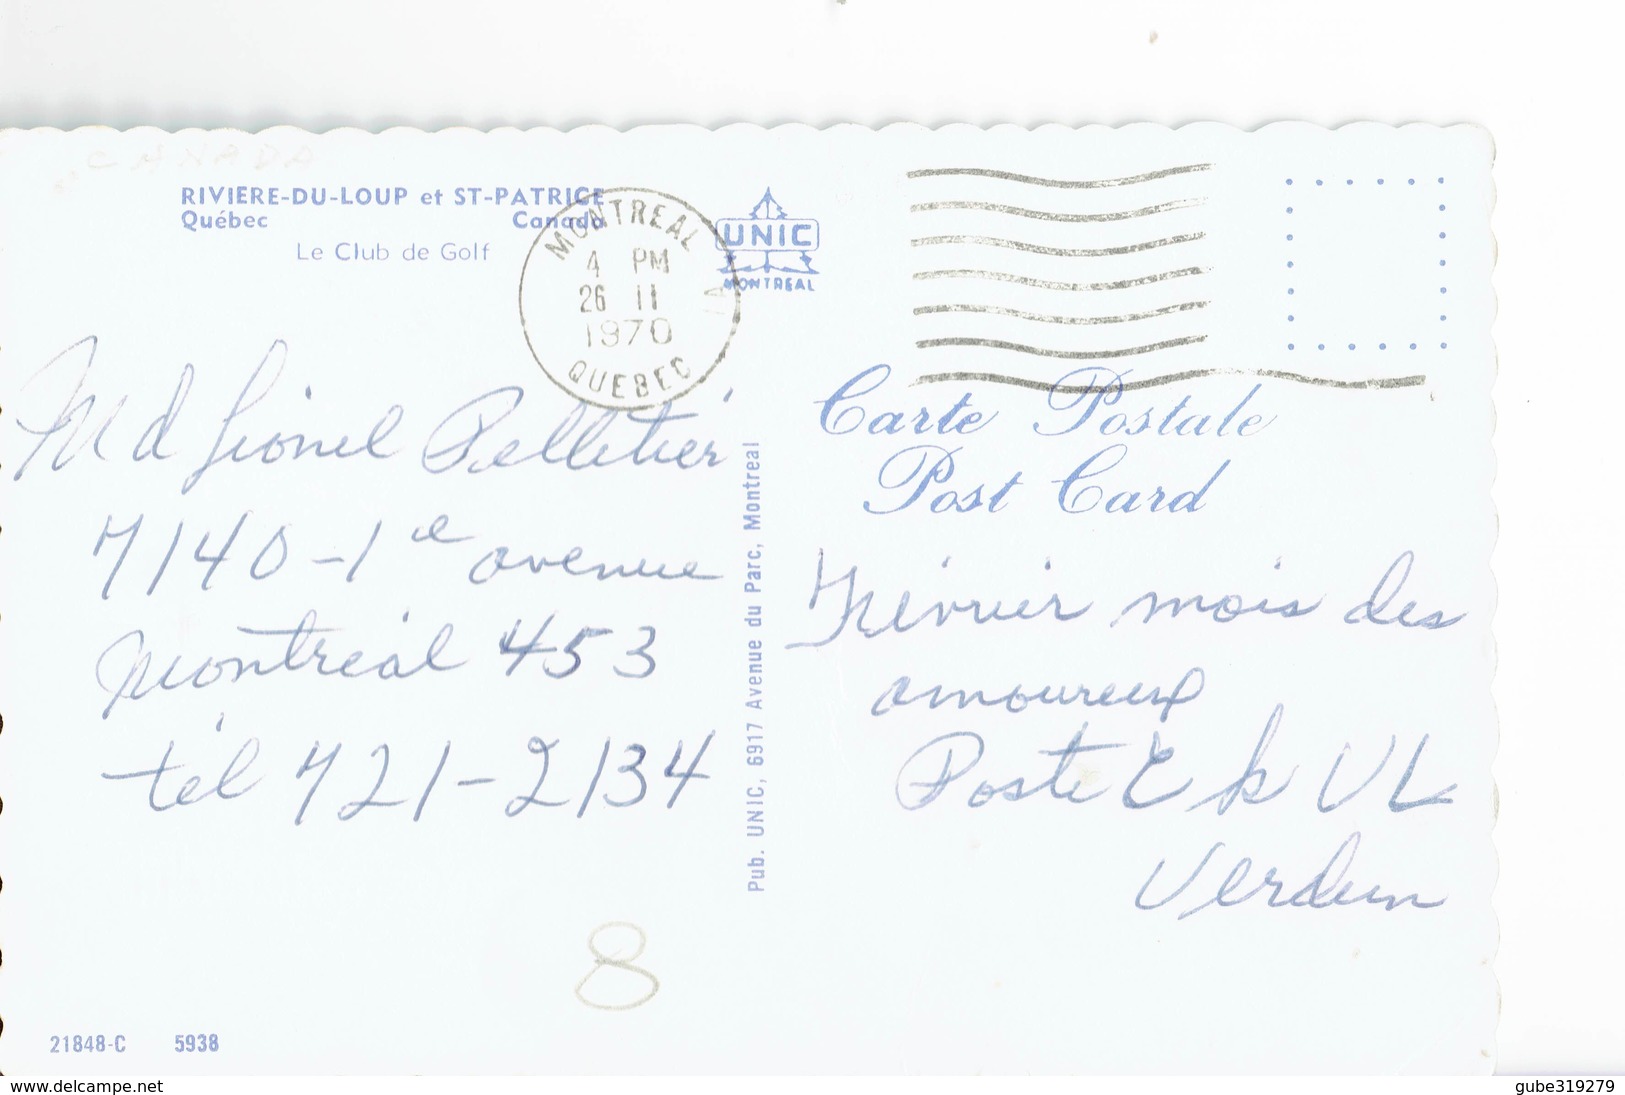 CANADA
RIVIERE-DU-LOUP et ST-PATRICE
Québec Canada
Le Club de Golf
MONTREAL
4 PM
26 II
1970
QUEBEC
UNIC
MONTREAL
Carte Postale
Post Card
Md Lionel Pelletier
7140-1e avenue
Montréal 453
tél 721-2134
Pub. UNIC, 6917 Avenue du Parc, Montreal
Février mois des
amoureux
Poste C k VL
Verdun
8
21848-C 5938
www.delcampe.net
gube319279